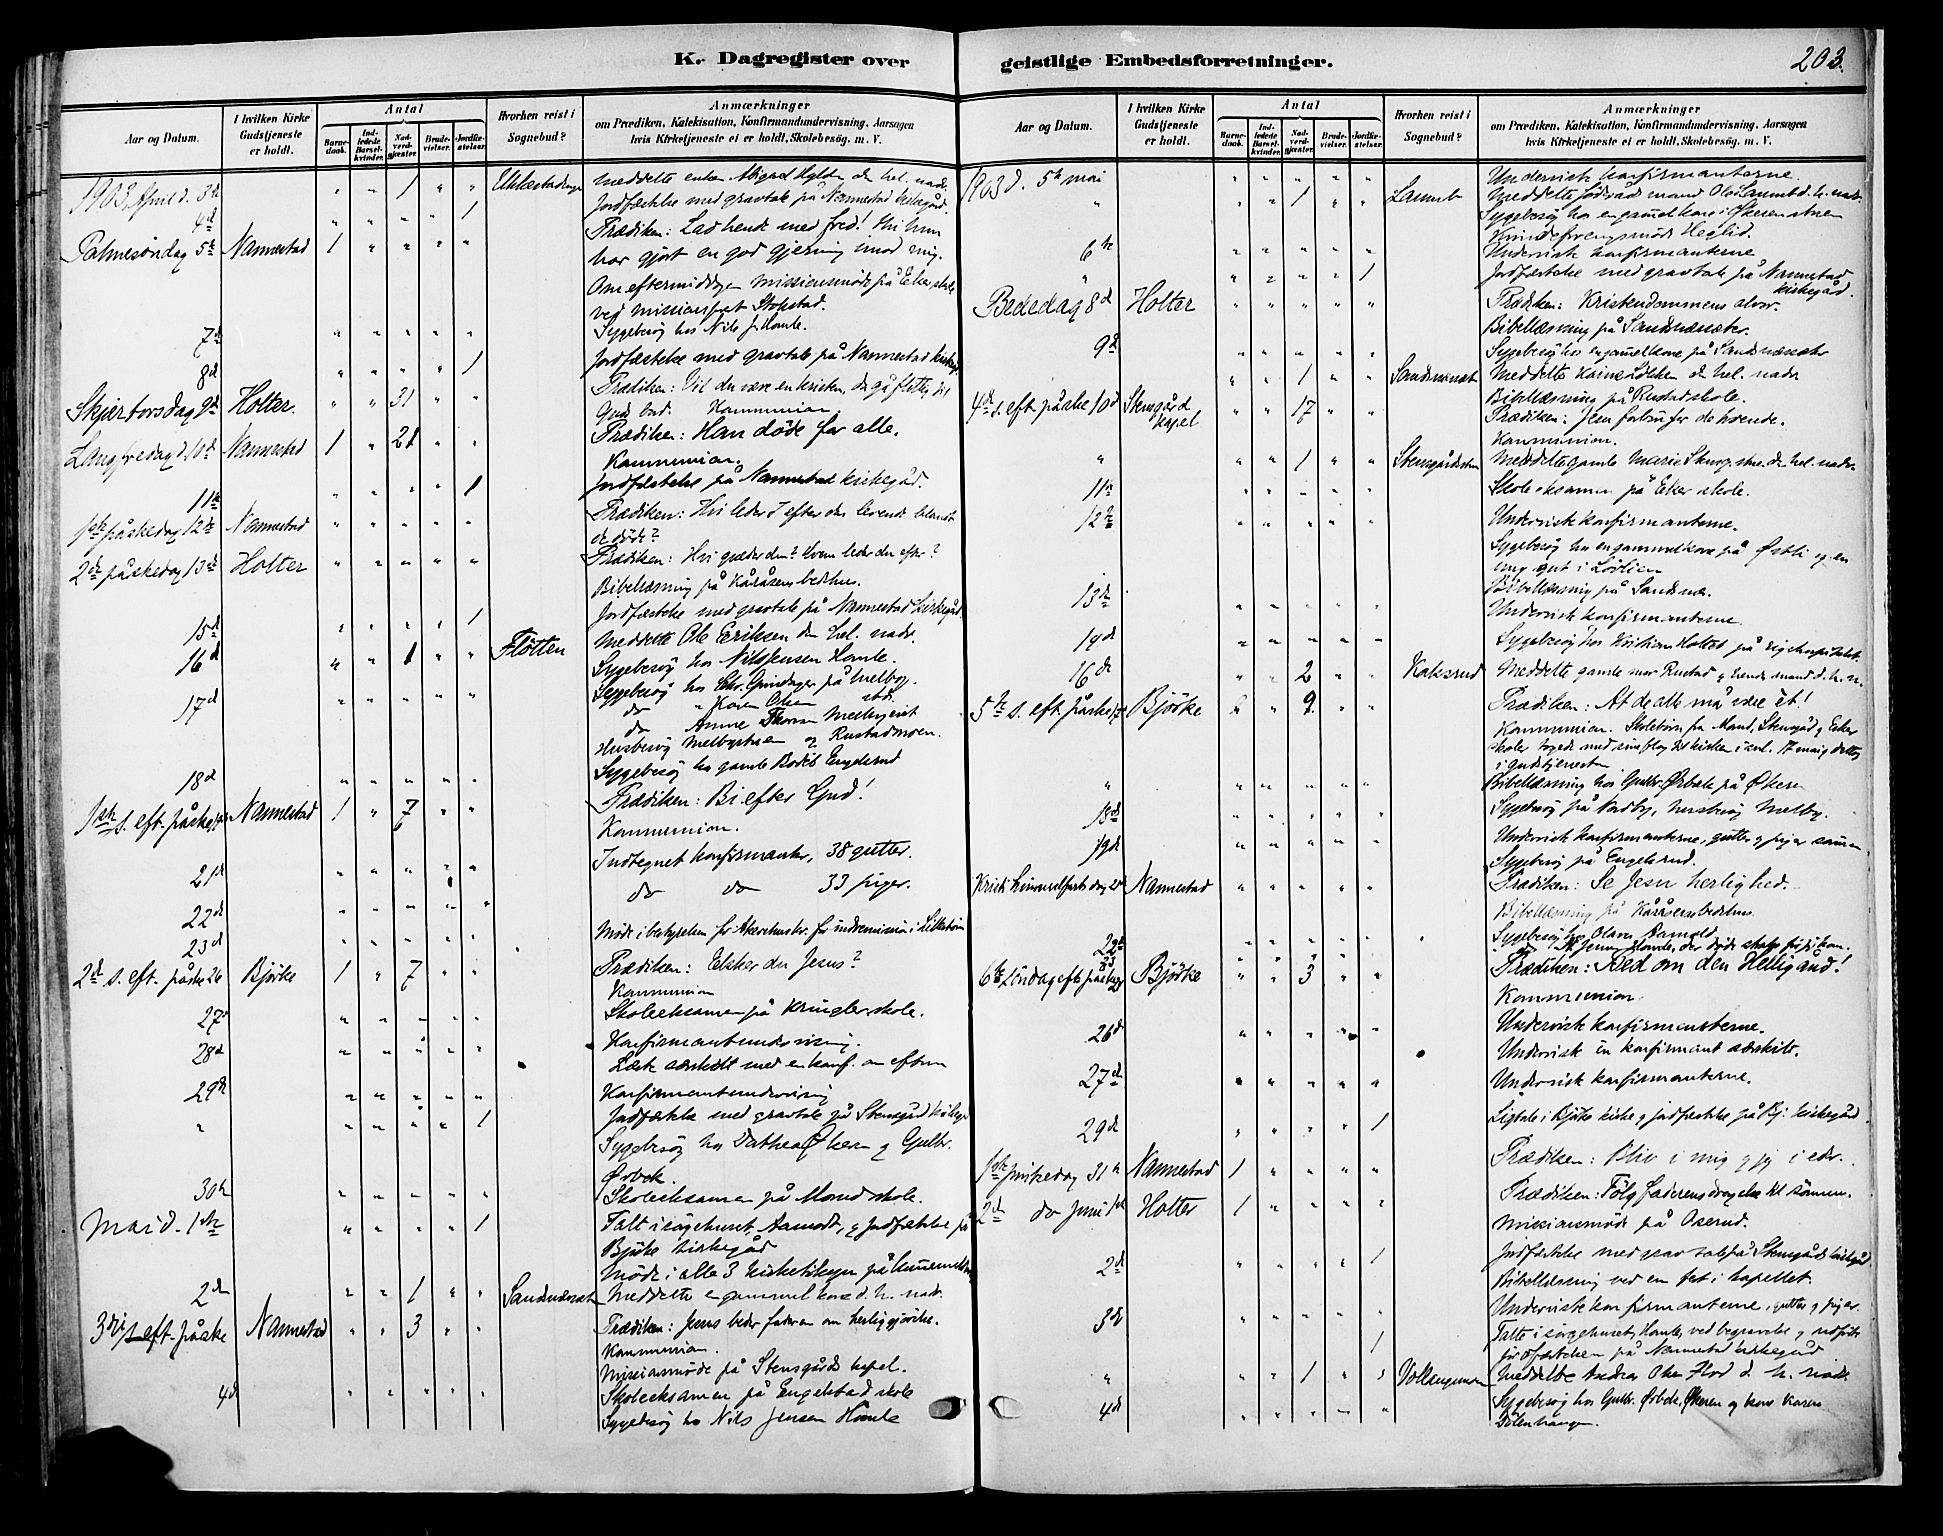 K. Dagregister over geistlige Embedsforretninger.
203.
Aar og Datum.
I hvilken Kirke Gudstjeneste er holdt.
Antal
Barne-daab.
Ind-ledede Barsel-kvinder.
Nad-verd-gjester.
Brude-vielser.
Jordfæ-stelser.
Hvorhen reist i Sognebud?
Anmærkninger
om Prædiken, Katekisation, Konfirmandundervisning, Aarsagen
hvis Kirketjeneste ei er holdt, Skolebesøg. m. V.
1903, April d. 3die 1 Meddelte enken den hel. nadv.
4de 1 Jordfæstelse med gravtale på Nannestad kirkegård.
Palmesøndag 5te Nannestad 1 Prædiken: Lad hende med fred! Thi hun
har gjort en god gjerning imod mig.
Om eftermiddagen missionsmøde på Eker skole
ved missionsprest Stokstad.
7de Sygebesøg hos Nils J. Homle.
8de 1 Jordfæstelse med gravtale på Nannestad kirkeg.
Skjærtorsdag 9de Holter. 31 Prædiken: Vil du være en kristen, da gå flittig til
Guds bord. Kommunion.
Langfredag d. 10de Nannestad 1 21 Prædiken: Han døde for alle.
Kommunion.
11te 1 Jordfæstelse på Nannestad kirkegård.
1ste påskedag 12te Nannestad Prædiken: Hvi leder I efter den levende blandt
de døde?
2den påskedag 13de Holter Prædiken: Hvi græder du? Hvem leder du efter?
Bibellæsning på Kåråsen
15de 1 Jordfæstelse med gravtale på Nannestad kirkegård
16de 1 Fløtten Meddelte Ole Eriksen den hel. nadv.
Sygebesøg hos Nils Jensen Homle.
17de Sygebesøg hos Chr. på Melby.
do " Karen Olsen
do Anne Melbyeiet
Husbesøg Melbystuen og Rustadmoen.
18de Sygebesøg hos gamle Bodil Engelsrud
1ste s. eft. påske 19de Nannestad 1 7 Prædiken: Bi efter Gud!
Kommunion.
21de Indtegnet konfirmanter, 38 gutter.
22de do do 33 piger.
23de Møde i bestyrelsen for Akershus for indremission i Lillestrøm
2den s. eft. påske 26 Bjørke 1 7 Prædiken: Elsker du Jesus?
Kommunion
27de Skoleeksamen på Kringler skole.
28de Konfirmantundervisning.
Læste særskilt med en konf. om eftm
29de Konfirmantundervisning
" 1 Jordfæstelse med gravtale på Stensgård kirkeg.
Sygebesøg hos Dorthea Økern og Gulbr.
Ørbek.
30te Skoleeksamen på Maura skole.
Mai d. 1ste 1 Talt i sørgehuset, Aamodt, og jordfæstelse på
Bjørke kirkegård
Møde i alle 3 kirketilsyn på
2den 1 Sandsnæseiet Meddelte en gammel kone d. h. nadv.
3die s. eft. påske Nannestad 3 Prædiken: Jesus beder faderen om herliggjørelse.
Kommunion.
Missionsmøde på Stensgårds kapel.
4de Skoleeksamen på Engelstad skole
Sygebesøg hos Nils Jensen Homle
Aar og Datum.
I hvilken Kirke Gudstjeneste er holdt.
Antal
Barne-daab.
Ind-ledede Barsel-kvinder.
Nad-verd-gjester.
Brude-vielser.
Jordfæ-stelser.
Hvorhen reist i Sognebud?
Anmærkninger
om Prædiken, Katekisation, Konfirmandundervisning, Aarsagen
hvis Kirketjeneste ei er holdt, Skolebesøg. m. V.
1903 d. 5te mai Undervist konfirmanterne.
" 1 Meddelte føderåd mand Ole d. h. nadv.
Sygebesøg hos en gammel kone i Økeren
Kvindeforeningsmøde Heglid.
6te Undervist konfirmanterne
" 1 Jordfæstelse med gravtale på Nannestad
kirkegård.
Bededag 8de Holter Prædiken: Kristendommens alvor.
Bibellæsning på Sandsnæseiet.
9de Sygebesøg hos en gammel kone på Sandsnæseiet
1 Sandsnæseiet Meddelte den hel. nadv
Bibellæsning på Rustad skole.
4de s. eft. påske 10de Stensgård kapel 17 Prædiken: Jesu for de troende.
Kommunion.
" 1 Stensgårdstuen Meddelte gamle Marie den hel. nadv.
11te Skoleeksamen på Eker skole.
12te Undervist konfirmanterne.
Sygebesøg hos en gammel kone på Østli og en
ung gut i Lövlien
13de Bibellæsning på Sandsnæs.
Undervist konfirmanterne.
14de Sygebesøg hos Kristian Holter på rigshospitalet.
16de 2 Kaksrud Meddelte gamle mor Rustad og hendes mand d. h. n.
5te s. eft. påske 17de Bjørke 9. Prædiken: At de alle må være ét!
Kommunion. Skolebørn fra Maura, Stensgård og Eker
skoler togede med sine flag til kirken i anl. 17 mai og deltog
i gudstjenesten
" Bibellæsning hos Gulbr. Ørbek på Økern
18de Sygebesøg på Nordby, husbesøg Melby.
19de Undervist konfirmanterne, gutter og piger sammen
Sygebesøg på Engelsrud.
Kristi himmelfarts dag 21de Nannestad Prædiken: Se Jesu herlighed.
Bibellæsning på Kåråsen
22de Sygebesøg hos Olava Aamold
23 do Nils Jensen Homle, der døde strax
6te søndag eft. påske 24 Bjørke 3 Prædiken: Bed om den Helligånd!
Kommunion
26de Undervist konfirmanterne.
Undervist en konfirmant særskilt.
27de Undervist konfirmanterne.
29de 1 Ligtale i Bjørke kirke og jordfæstelse på Bj. kirkegård.
1ste pintsedag 31te Nannestad 1 Prædiken: Bliv i mig og jeg i eder.
2den do Juni 1ste Holter 1 Prædiken: Følg faderens dragelse til sønnen.
Missionsmøde på Oserud.
2den 1 Jordfæstelse med gravtale på Stensgårds kirkegård
Bibellæsning ved en fest i kapellet.
3die Undervist konfirmanterne, gutter og piger.
1 Talte i sørgehuset, Homle, ved begravelse og udførte
jordfæstelsen på Nannestad kirkegård
" 1 Meddelte Andreas Olsen Flod d. h. nadv.
4de Sygebesøg hos Gulbr. Ørbek, Økeren og kone Karen